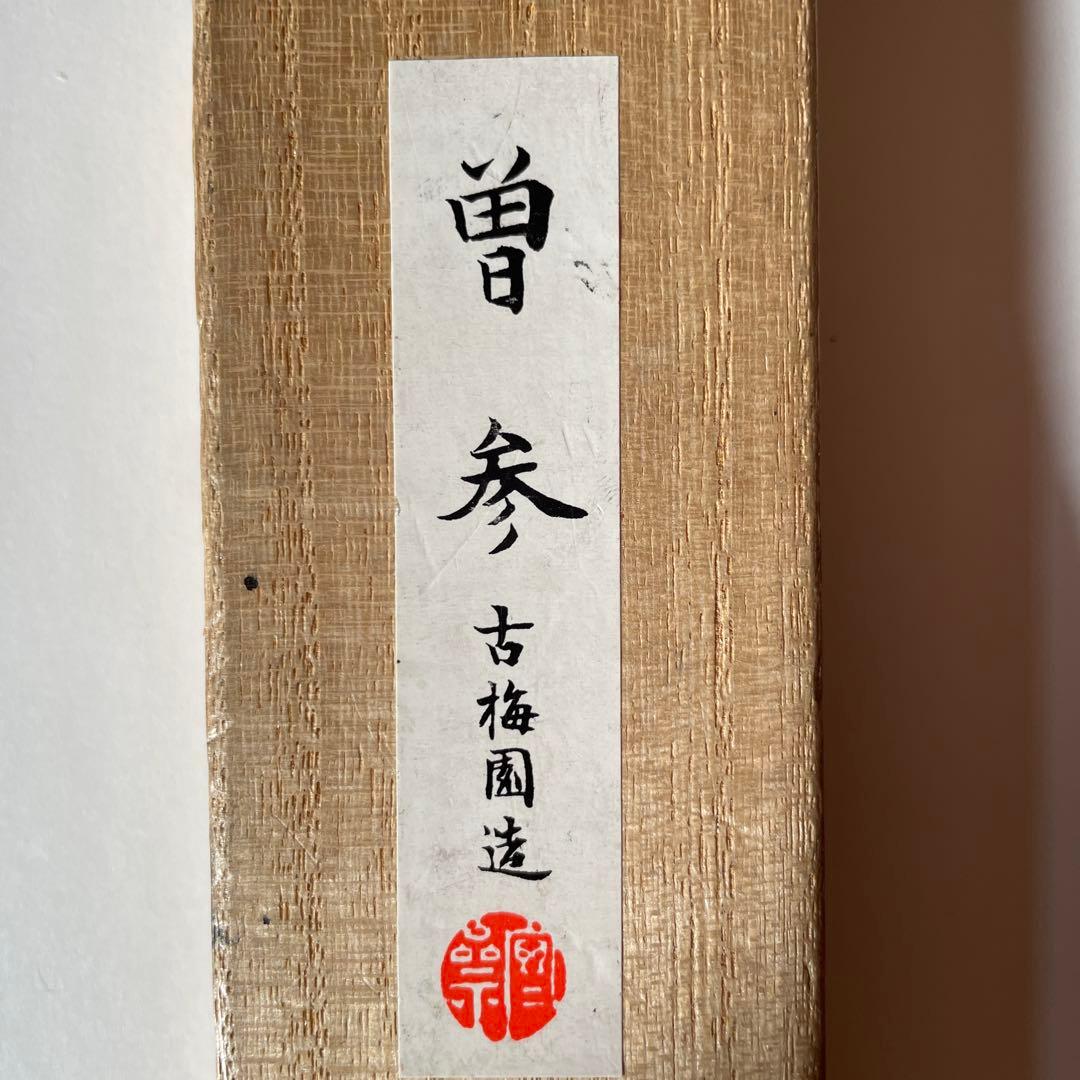 曽参
古梅園造